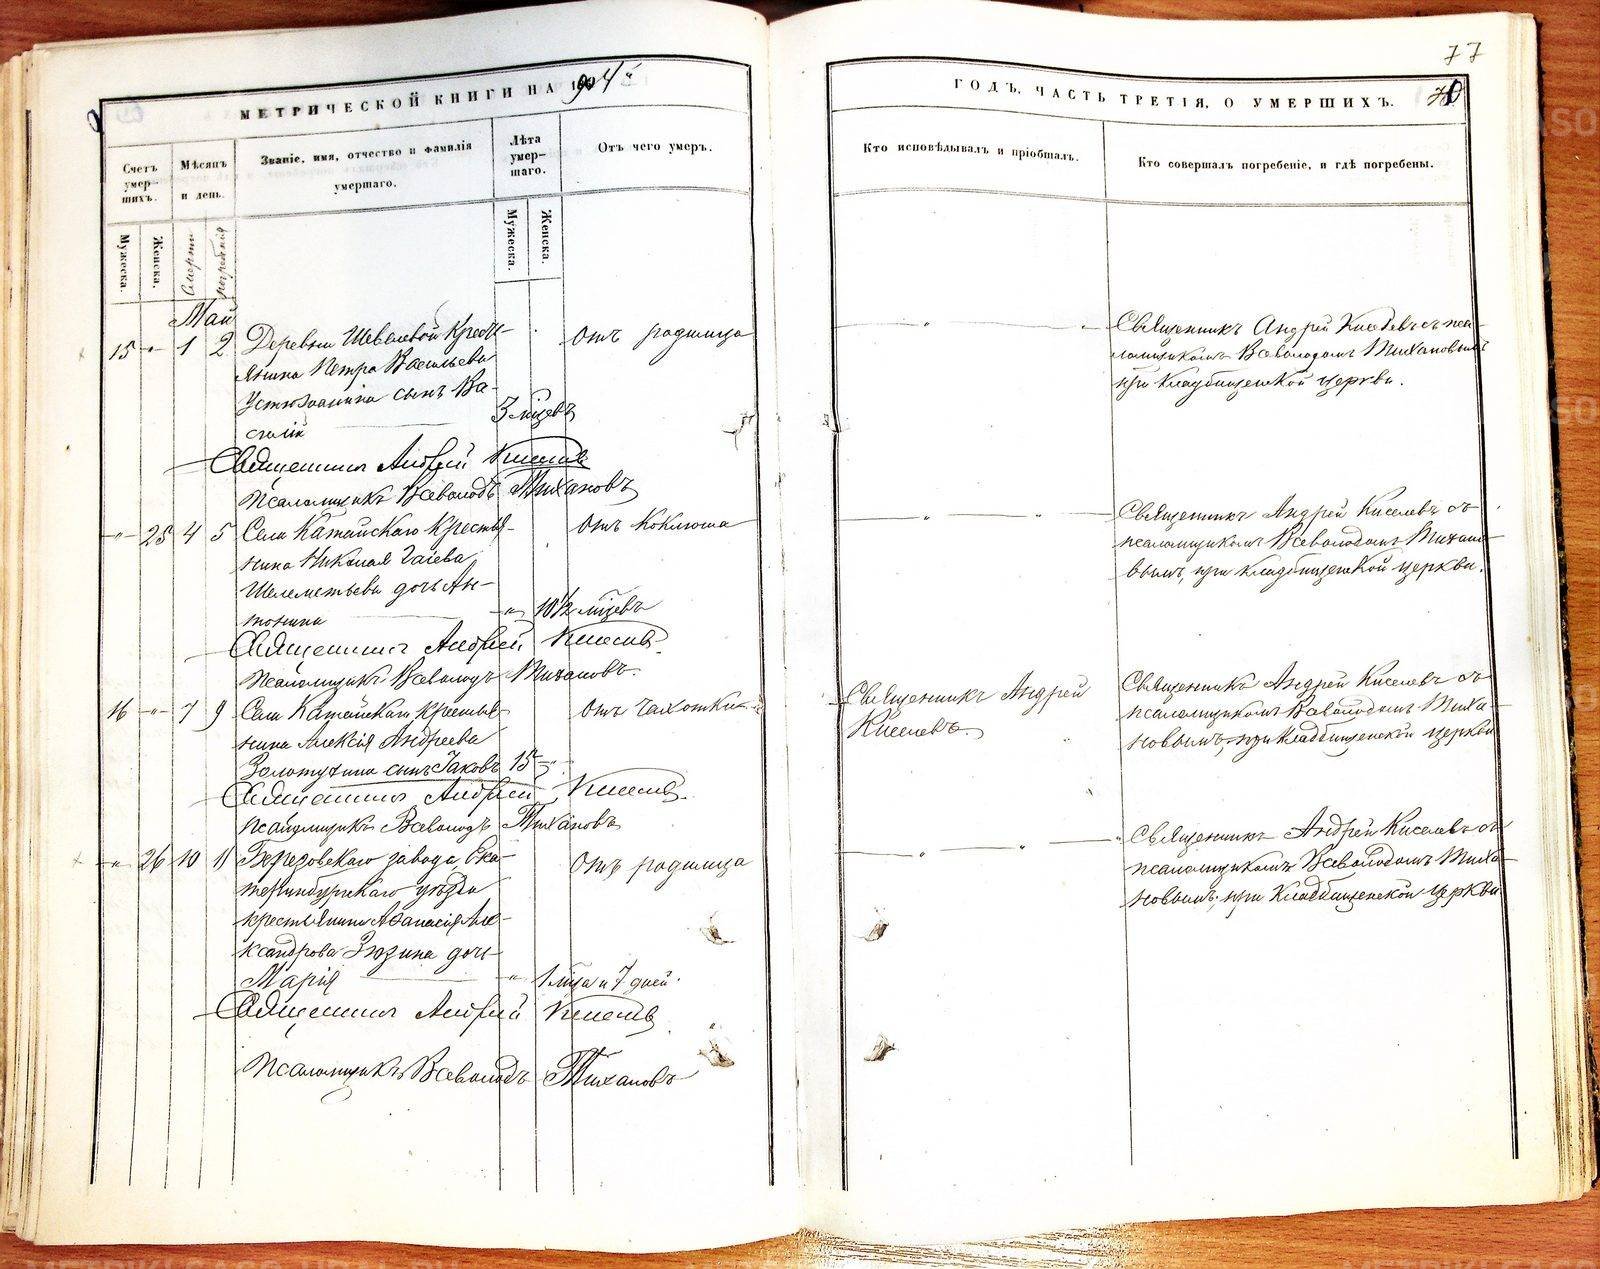 77
МЕТРИЧЕСКОЙ КНИГИ НА 1904й
ГОДЪ, ЧАСТЬ ТРЕТІЯ, О УМЕРШИХЪ.
Счетъ умер-шихъ.
Мѣсяцъ и день.
Званіе, имя, отчество и фамилія умершаго.
Лѣта умер-шаго.
Отъ чего умеръ.
Кто исповѣдывалъ и пріобщалъ.
Кто совершалъ погребеніе, и гдѣ погребены.
Мужеска.
Женска.
Смерти
погребенія
Мужеска.
Женска.
Май
15 -"- 1 2 Деревни Шевелевой кресть-
янина Петра Васильева
Устюжанина сынъ Ва-
силій
3 мѣсцевъ
отъ родимца
Священникъ Андрей Киселевъ съ пса-
ломщикомъ Всеволодомъ Тихановымъ
при кладбищенской церкви.
Священникъ Андрей Киселевъ
Псаломщикъ Всеволодъ Тихановъ
-"- 25 4 5 Села Катайскаго крестья-
нина Николая
Шелементьева дочь Ан-
тонина
-"- 10½ мѣсцевъ
отъ коклюша
Священникъ Андрей Киселевъ съ
псаломщикомъ Всеволодомъ Тихано-
вымъ, при кладбищенской церкви.
Священникъ Андрей Киселевъ
Псаломщикъ Всеволодъ Тихановъ.
16 -"- 7 9 Села Катайскаго крестья-
нина Алексія Андреева
Золотухина сынъ Іаковъ 15 -"-
отъ чахотки
Священникъ Андрей
Киселевъ.
Священникъ Андрей Киселевъ съ
псаломщикомъ Всеволодомъ Тиха-
новымъ, при кладбищенской церкви
Священникъ Андрей Киселевъ
Псаломщикъ Всеволодъ Тихановъ
-"- 26 10 11 Березовскаго завода Ека-
теринбургскаго уѣзда
крестьянина Аѳанасія Але-
ксандрова Зюзина дочь
Марія
-"- 1 мѣца и 7 дней.
отъ родимца
Священникъ Андрей Киселевъ съ
псаломщикомъ Всеволодомъ Тиха-
новымъ, при кладбищенской церкви
Священникъ Андрей Киселевъ
Псаломщикъ Всеволодъ Тихановъ